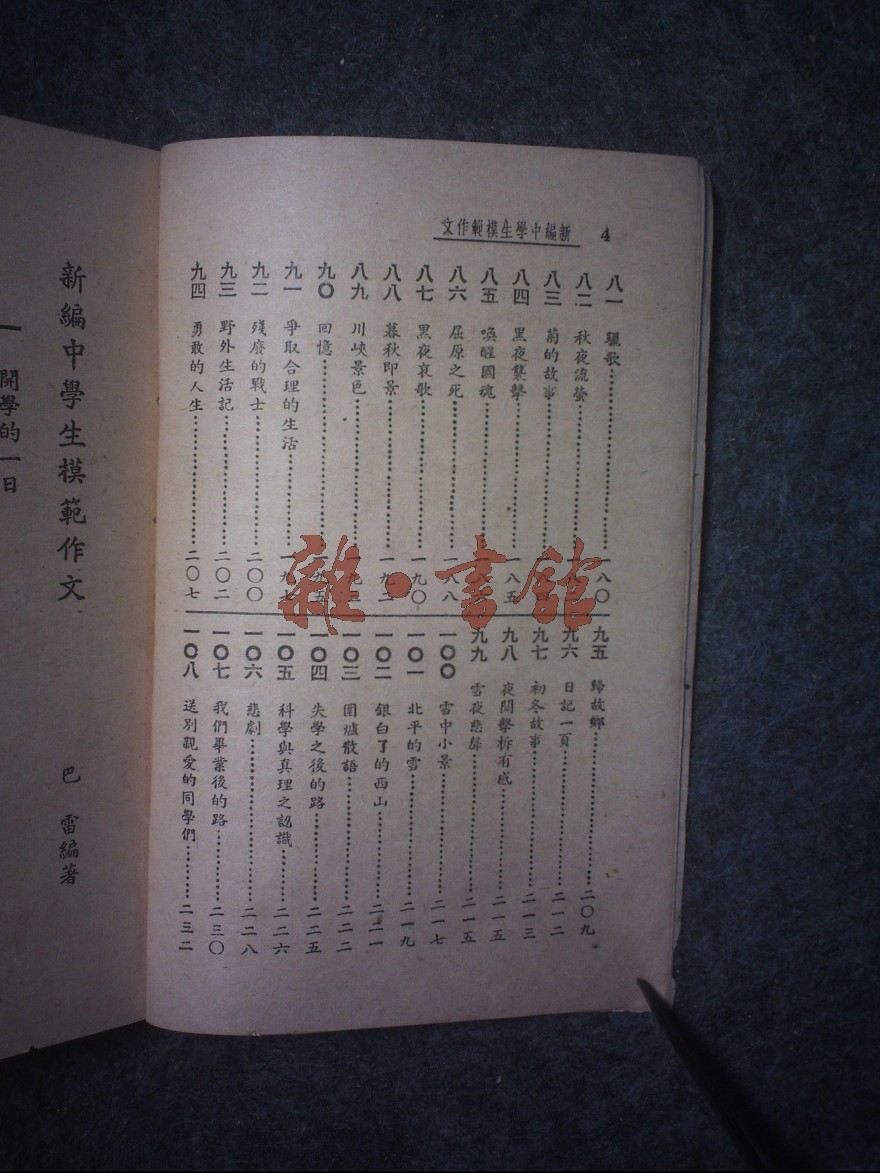 4
新編中學生模範作文
八一 驪歌……一八〇
八二 秋夜流螢……一
八三 菊的故事……一
八四 黑夜襲擊……一八五
八五 喚醒國魂……一
八六 屈原之死……一八八
八七 黑夜哀歌……一九〇
八八 暮秋即景……一九二
八九 川峽景色……一九
九〇 回憶……一九五
九一 爭取合理的生活……一九七
九二 殘廢的戰士……二〇〇
九三 野外生活記……二〇二
九四 勇敢的人生……二〇七
九五 歸故鄉……二〇九
九六 日記一頁……二一二
九七 初冬故事……二一三
九八 夜間擊柝有感……二一五
九九 雪夜悲聲……二一五
一〇〇 雪中小景……二一七
一〇一 北平的雪……二一九
一〇二 銀白了的西山……二二一
一〇三 圍爐散語……二二二
一〇四 失學之後的路……二二五
一〇五 科學與真理之認識……二二六
一〇六 悲劇……二二八
一〇七 我們畢業後的路……二三〇
一〇八 送別親愛的同學們……二三二
雜·書館
新編中學生模範作文
巴雷編著
一 開學的一日